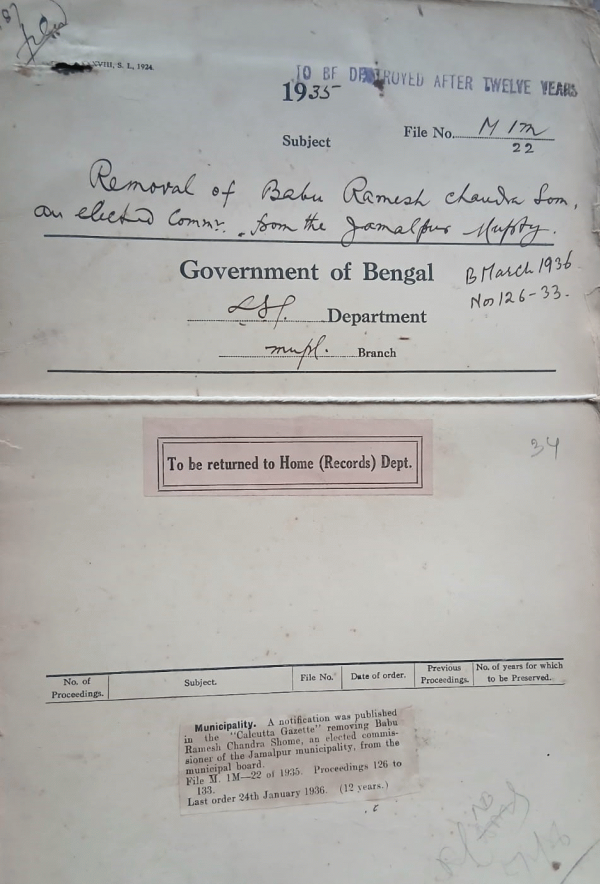 XVIII, S. I., 1924.
TO BE DESTROYED AFTER TWELVE YEARS
1935
File No. M 1M
22
Subject
Removal of Babu Ramesh Chandra Som,
an elected Commr. from the Jamalpur Mupty.
Government of Bengal
B March 1936
Nos 126-33.
LSG. Department
mupl. Branch
34
To be returned to Home (Records) Dept.
No. of Proceedings. Subject. File No. Date of order. Previous Proceedings. No. of years for which to be Preserved.
Municipality. A notification was published
in the "Calcutta Gazette" removing Babu
Ramesh Chandra Shome, an elected commis-
sioner of the Jamalpur municipality, from the
municipal board.
File M. 1M—22 of 1935. Proceedings 126 to
133.
Last order 24th January 1936. (12 years.)